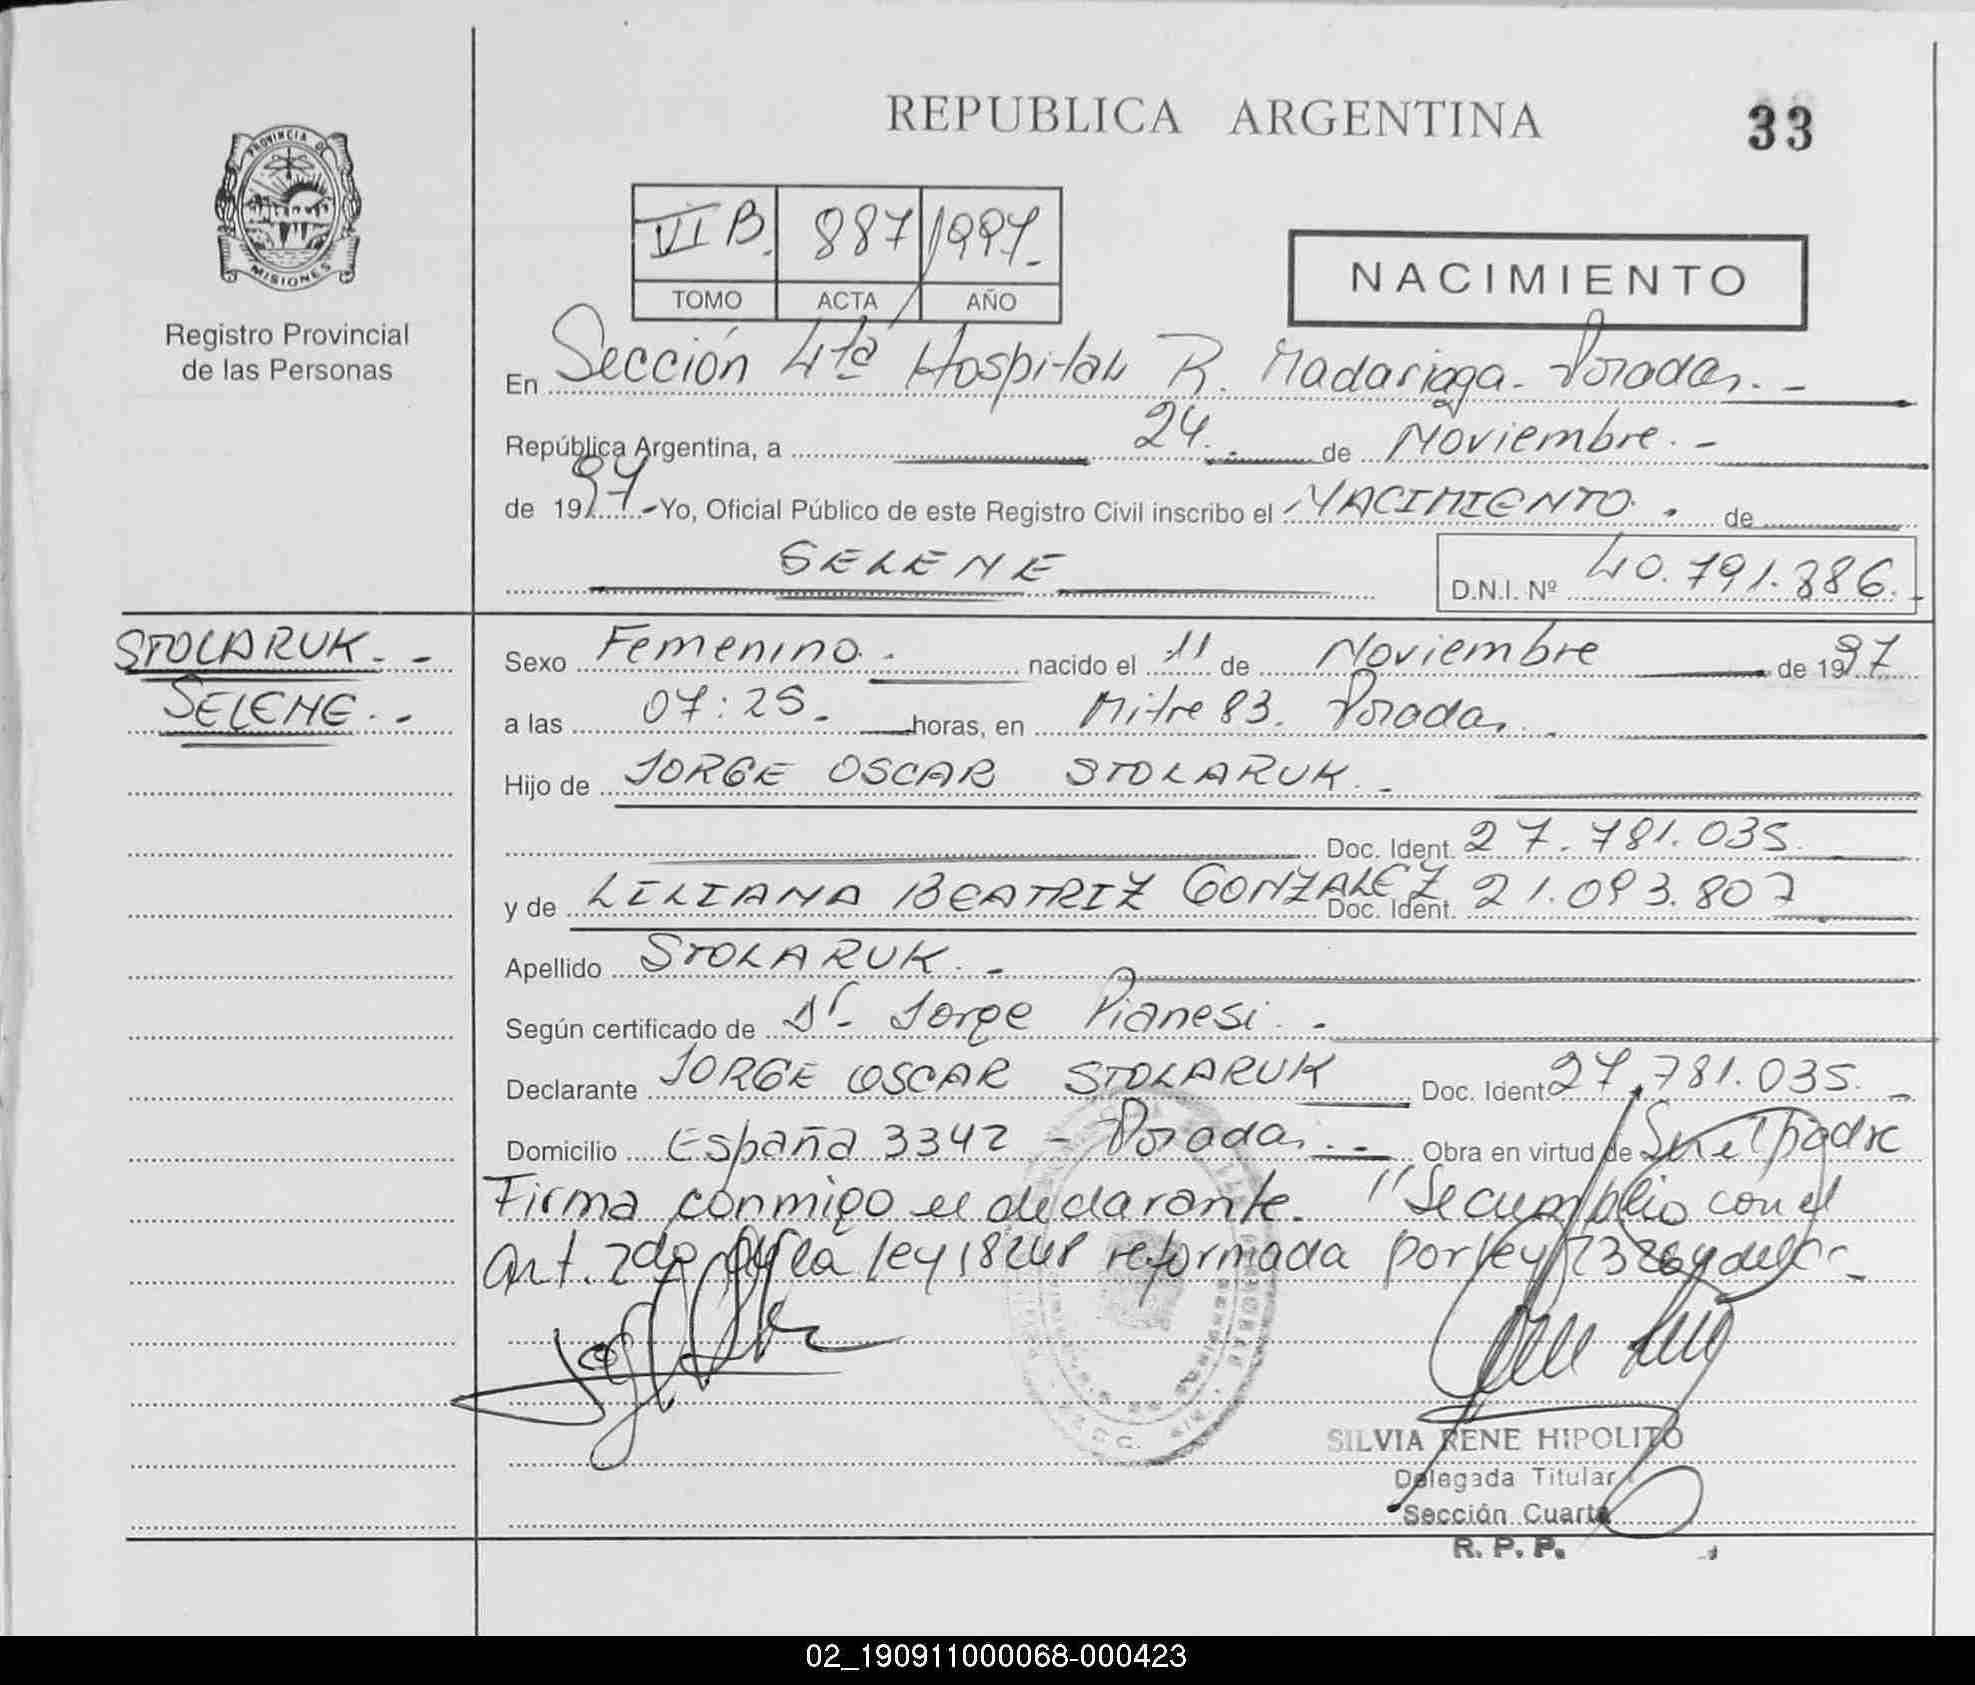 REPUBLICA ARGENTINA
33
PROVINCIA DE
MISIONES
Registro Provincial
de las Personas
VI B. 887 1997.-
TOMO ACTA AÑO
NACIMIENTO
En Sección 4ta Hospital R. Madariaga - Posadas. -
República Argentina, a 24. de Noviembre. -
de 1997.- Yo, Oficial Público de este Registro Civil inscribo el NACIMIENTO. de
SELENE
D.N.I. Nº 40.791.886.
STOLARUK. -
SELENE. -
Sexo Femenino. nacido el 11 de Noviembre de 1997
a las 07:25. horas, en Mitre 83. Posadas.
Hijo de JORGE OSCAR STOLARUK. -
Doc. Ident. 27.781.035.
y de LILIANA BEATRIZ GONZALEZ Doc. Ident. 21.093.807
Apellido STOLARUK. -
Según certificado de Dr. Jorge Pianesi. -
Declarante JORGE OSCAR STOLARUK Doc. Ident 27.781.035. -
Domicilio España 3342 - Posadas. - Obra en virtud de Ser el padre
Firma conmigo el declarante. "Se cumplio con el
art. 2do de la ley 18248 reformada por ley
SILVIA RENE HIPOLITO
Delegada Titular
Sección Cuarta
R. P. P.
02_190911000068-000423